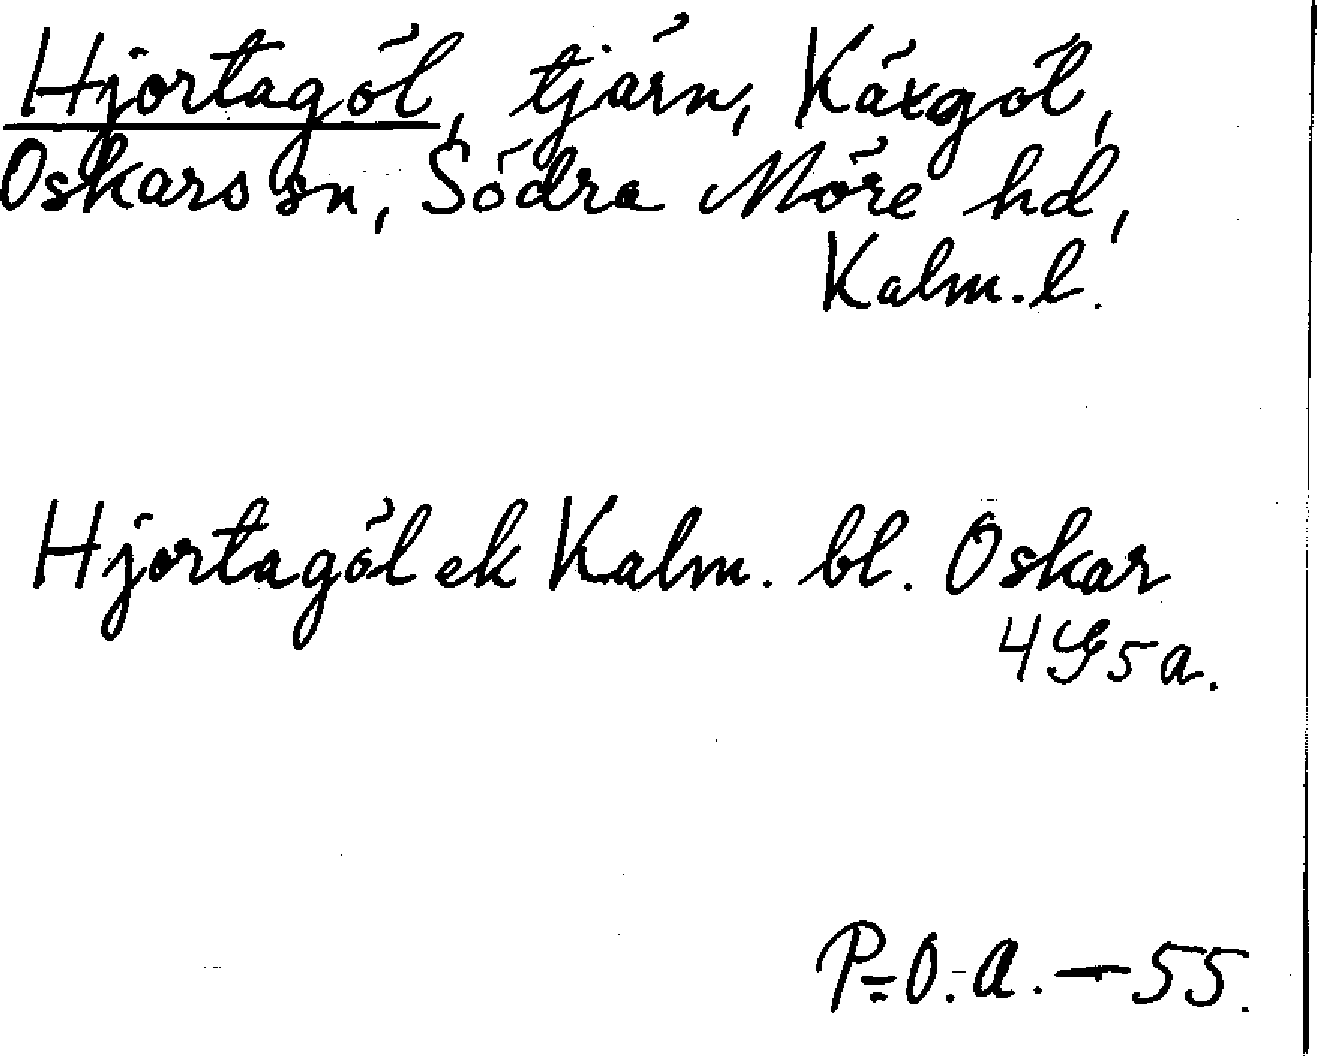 Hjortagöl, tjärn, Käxgöl,
Oskars sn, Södra Möre hd,
Kalm. l.
Hjortagöl ek Kalm. bl. Oskar
4G5a.
P-O. A. – 55.